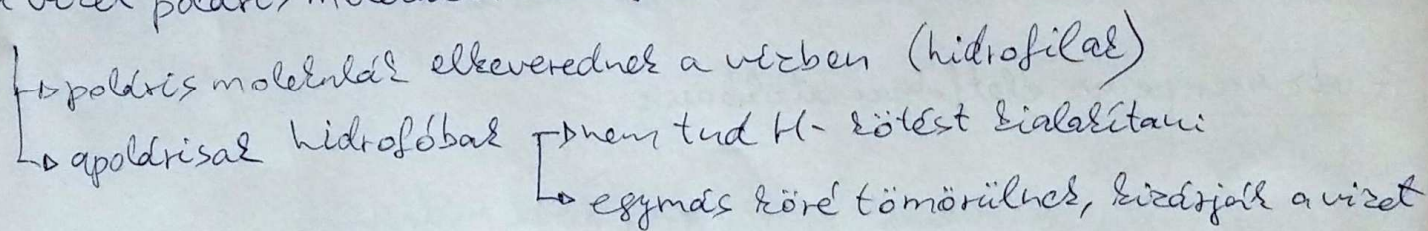 a vizek poláris molekul
→ poláris molekulák elkeverednek a vízben (hidrofilak)
→ apolárisak hidrofóbak → nem tud H- kötést kialakítani
→ egymás köré tömörülnek, kizárják a vizet